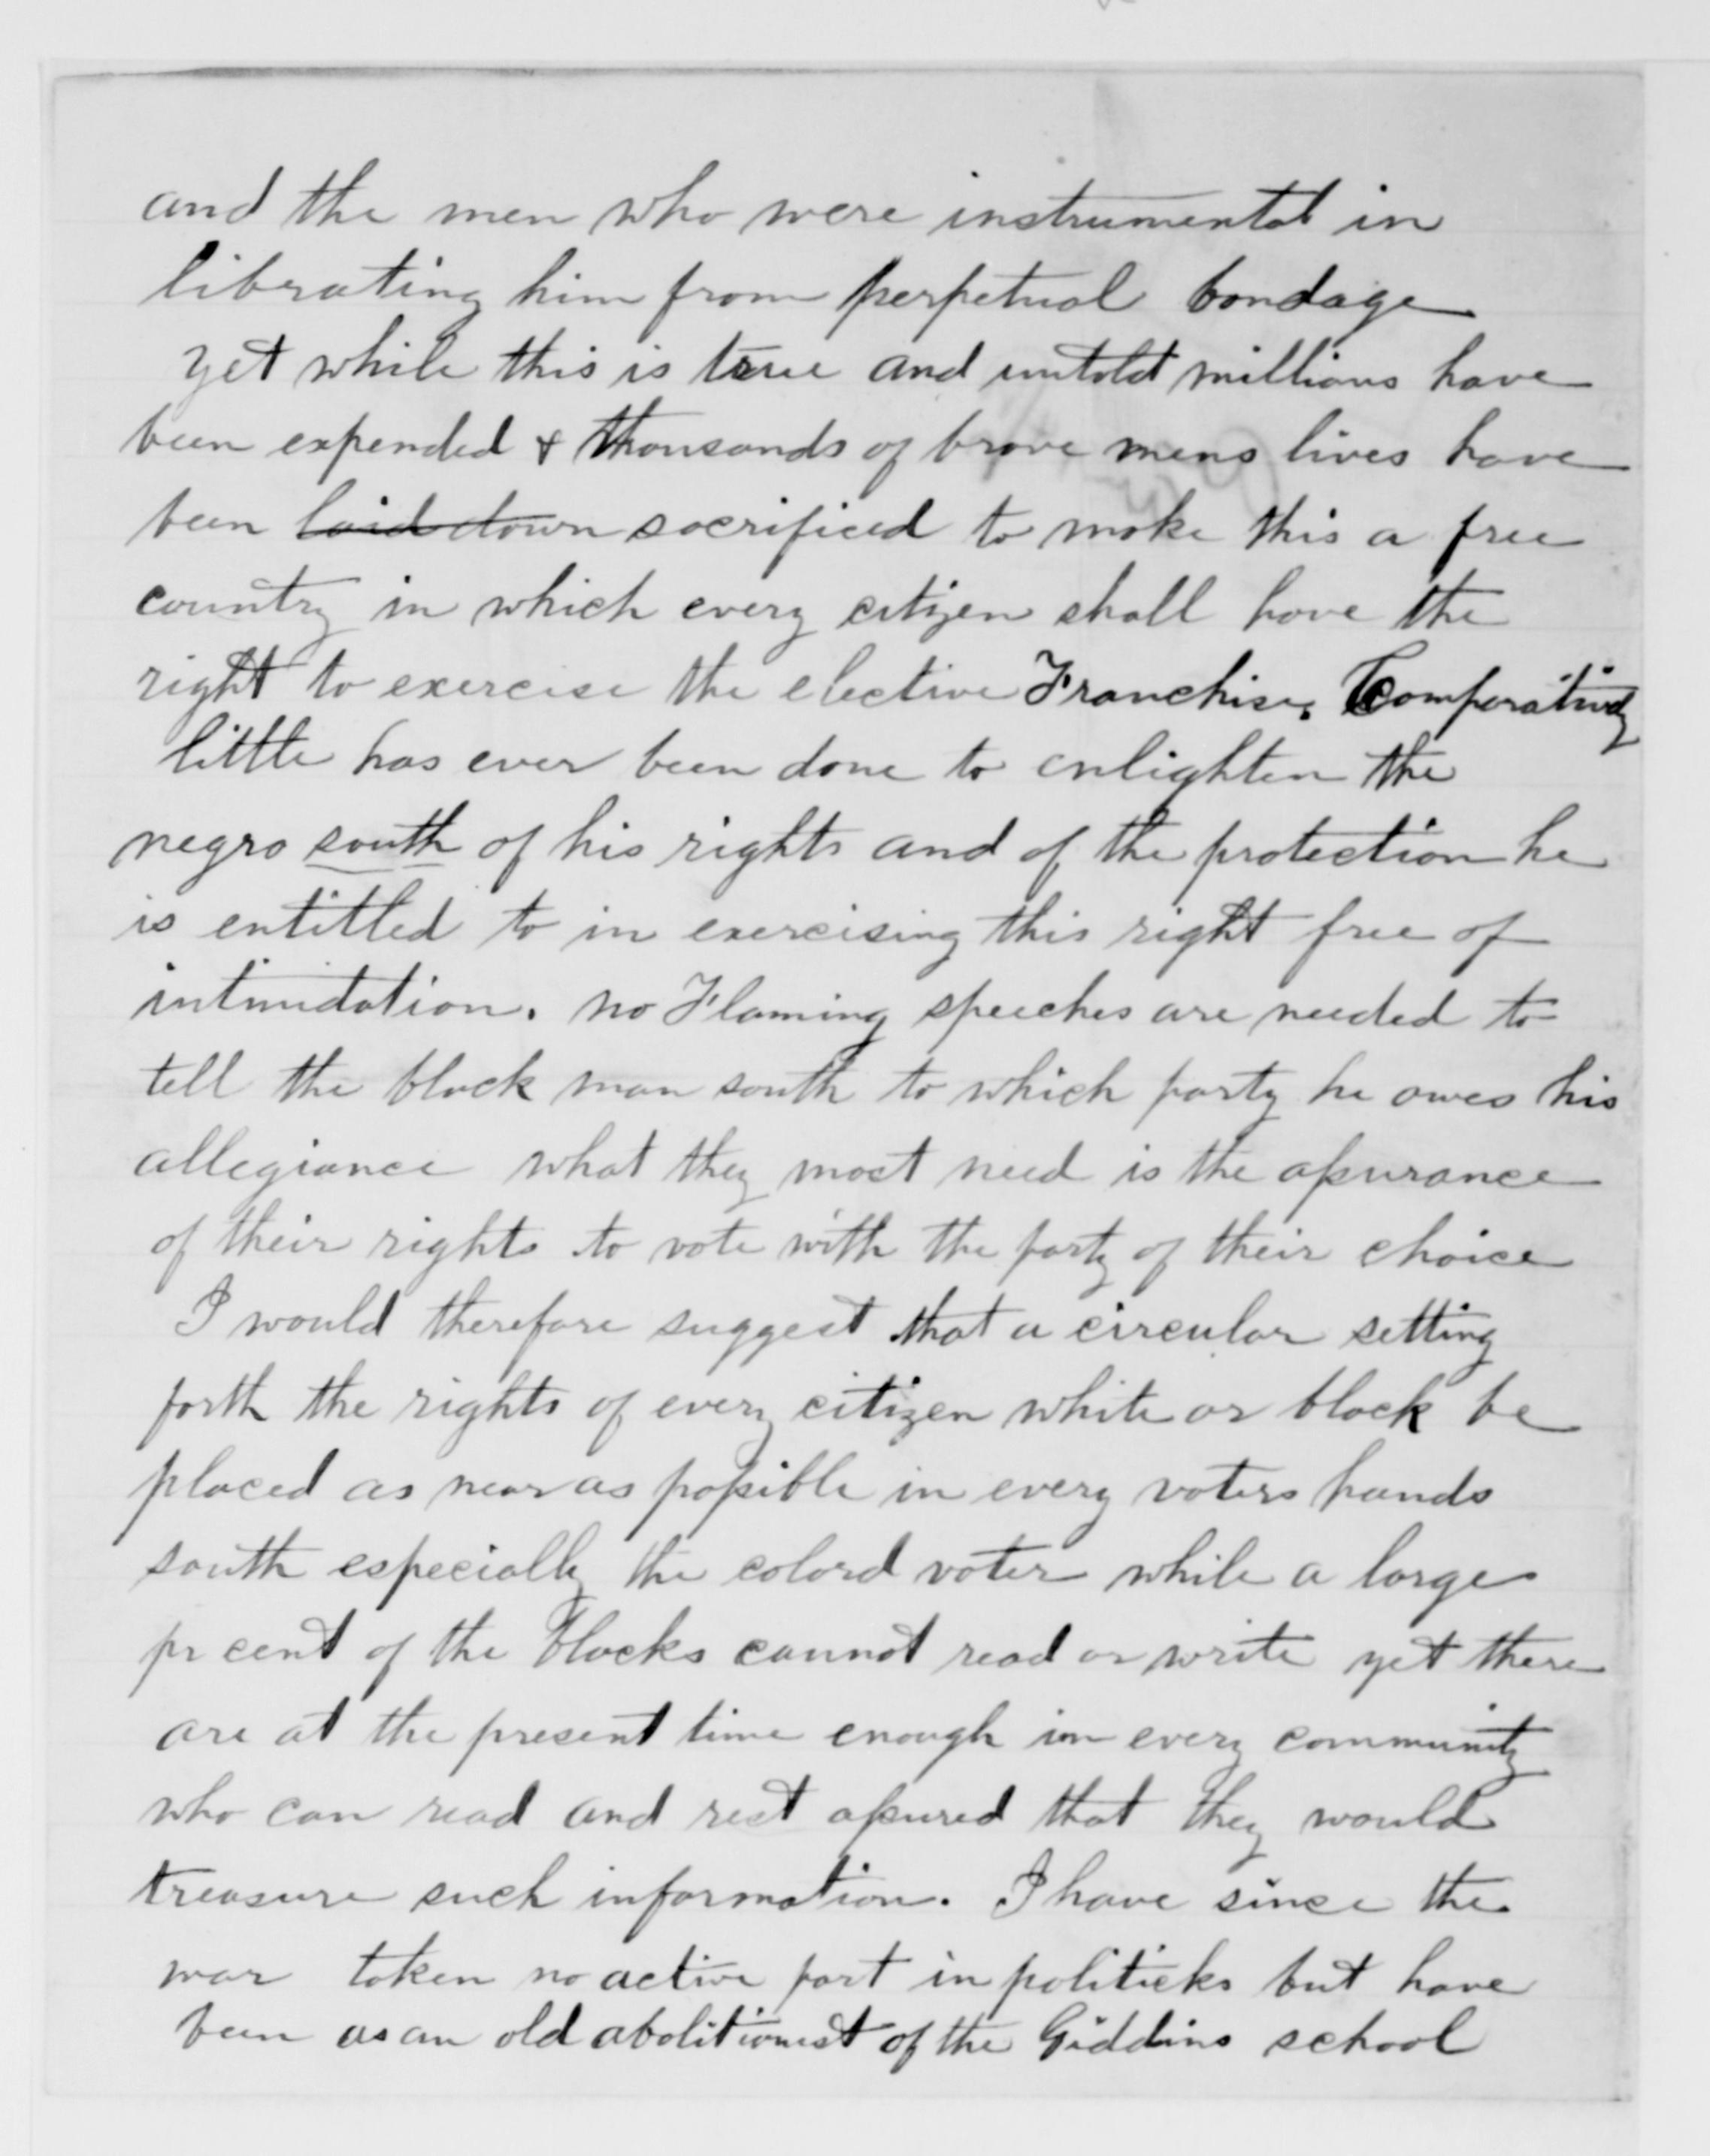 and the men who were instrumental in
liberating him from perpetual bondage
yet while this is true and untold millions have
been expended & thousands of brave mens lives have
been laid down sacrificed to make this a free
country in which every citizen shall have the
right to exercise the elective Franchise. Comparatively
little has ever been done to enlighten the
negro south of his rights and of the protection he
is entitled to in exercising this right free of
intimidation. no Flaming speeches are needed to
tell the black man south to which party he owes his
allegiance what they most need is the assurance
of their rights to vote with the party of their choice
I would therefore suggest that a circular setting
forth the rights of every citizen white or black be
placed as near as possible in every voters hands
south especially the colord voter while a large
pr cent of the blacks cannot read or write yet there
are at the present time enough in every community
who can read and rest assured that they would
treasure such information. I have since the
war taken no active part in politicks but have
been as an old abolitionist of the Giddins school